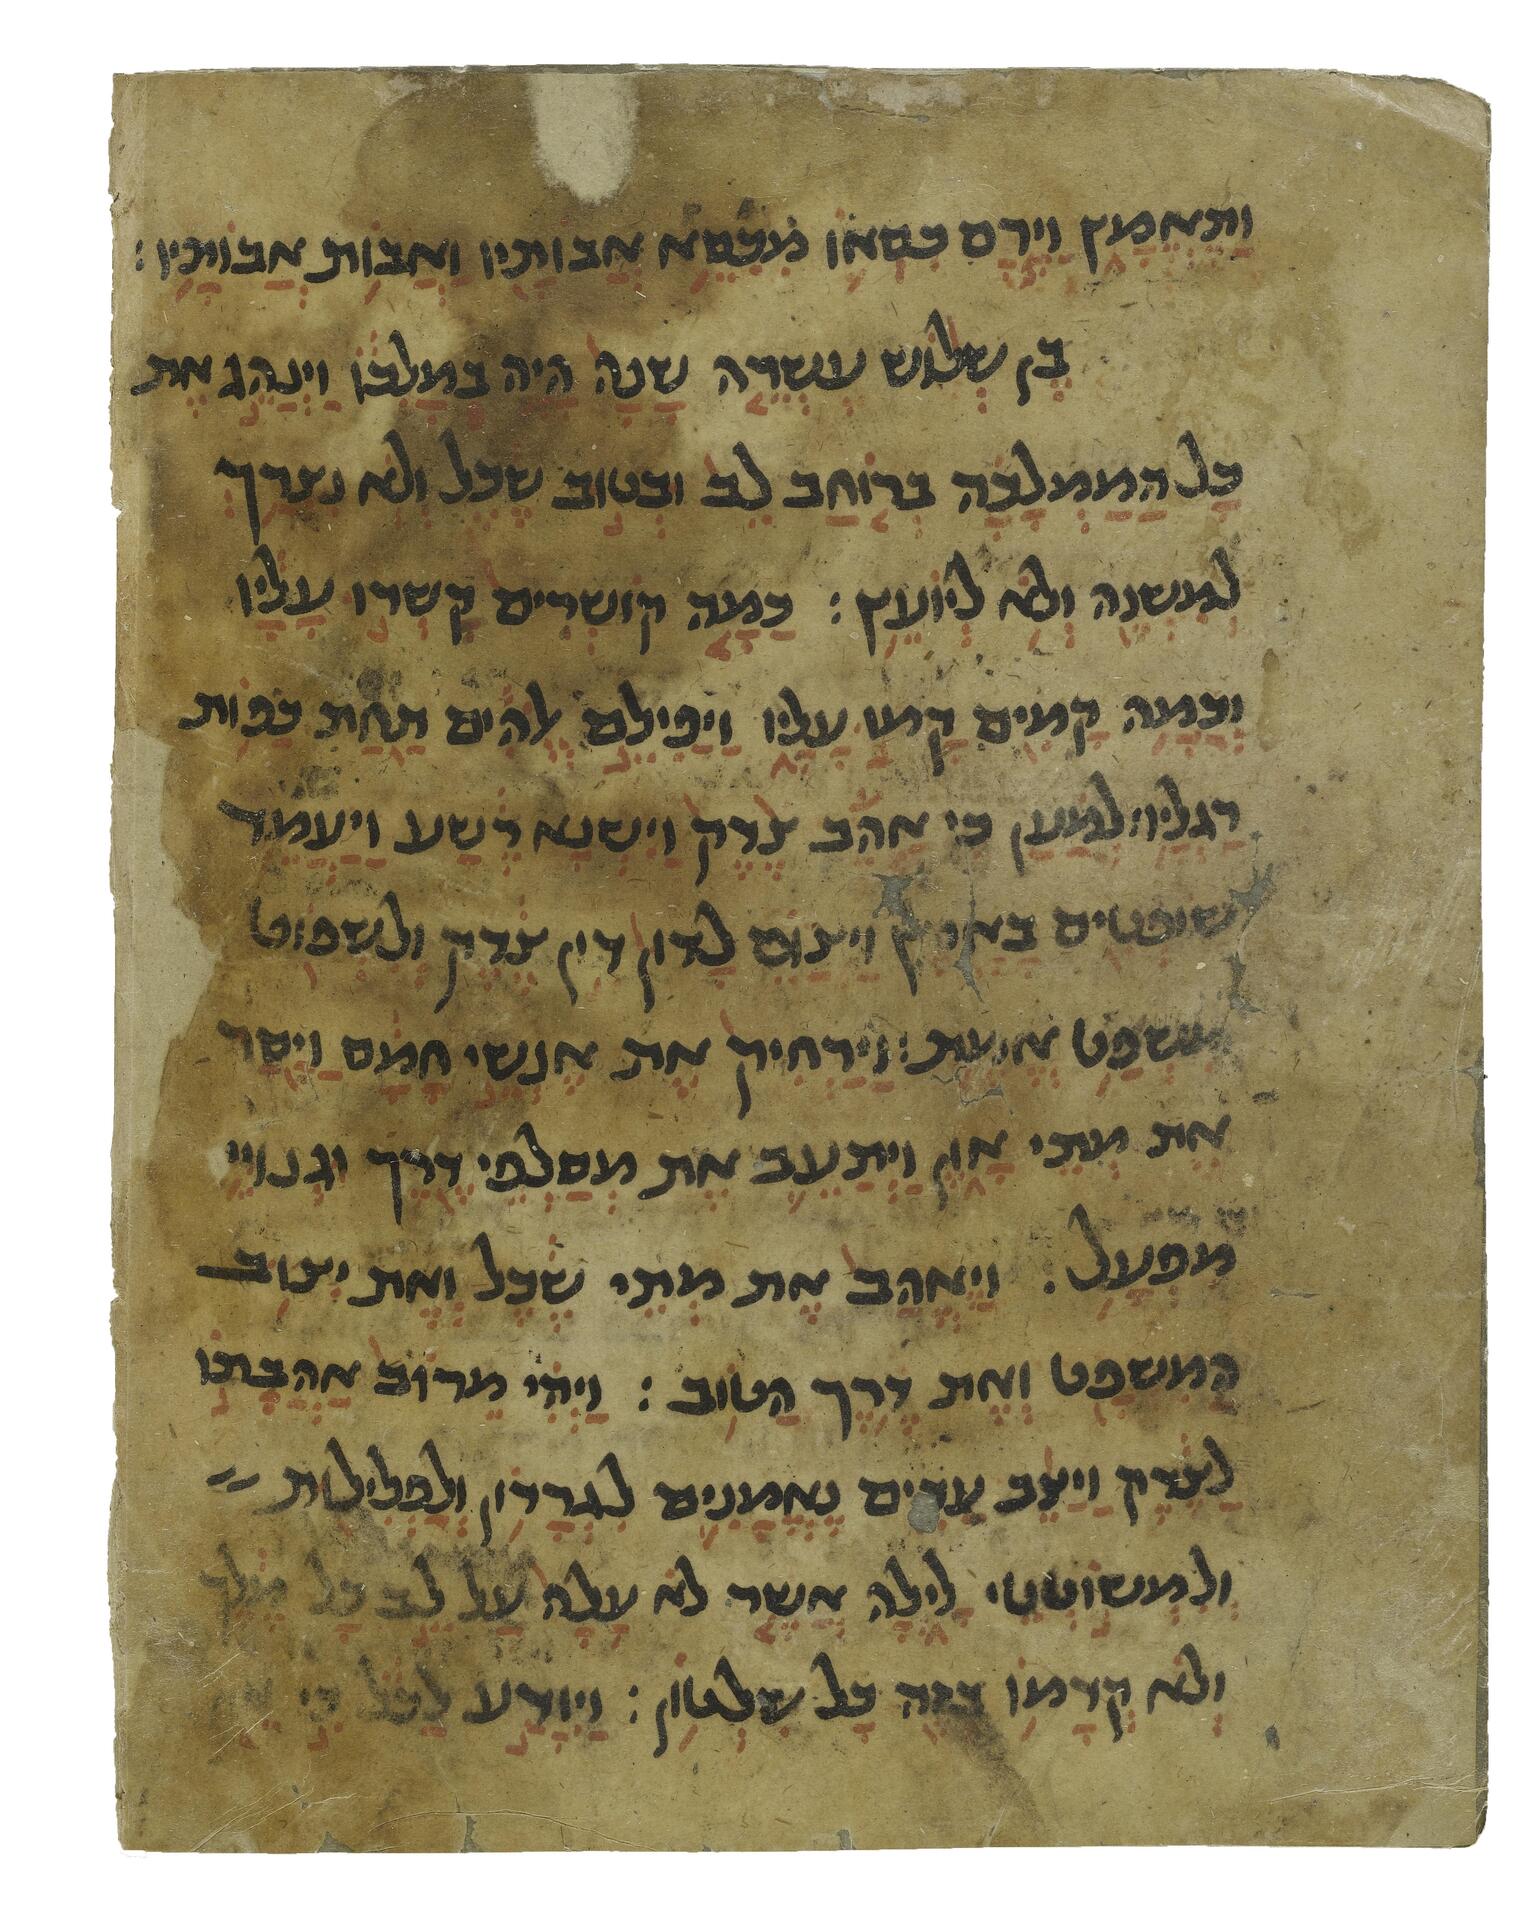 ותאמץ וירם כסאו מכסא אבותיו ואבות אבותיו :
בן שלוש עשרה שנה היה במלכו וינהג את
כל הממלכה ברוחב לב ובטוב שכל ולא נצרך
למשנה ולא ליועץ : כמה קושרים קשרו עליו
וכמה קמים קמו עליו ויפילם אלהים תחת כפות
רגליו : למען כי אהב צדק וישנא רשע ויעמד
שופטים בארץ ויצום לדון דין צדק ולשפוט
משפט אמת : וירחיק את אנשי חמס ויסר
את מתי און ויתעב את מסלפי דרך וגנויי
מפעל . ויאהב את מתי שכל ואת יצוב
המשפט ואת דרך הטוב : ויהי מרוב אהבתו
לצדק ויצב עדים נאמנים לגדרון ולפלילות
ולמשוטטי לילה אשר לא עלה על לב כל מלך
ולא קדמו בזה כל שלטון : ויודע לכל כי אם